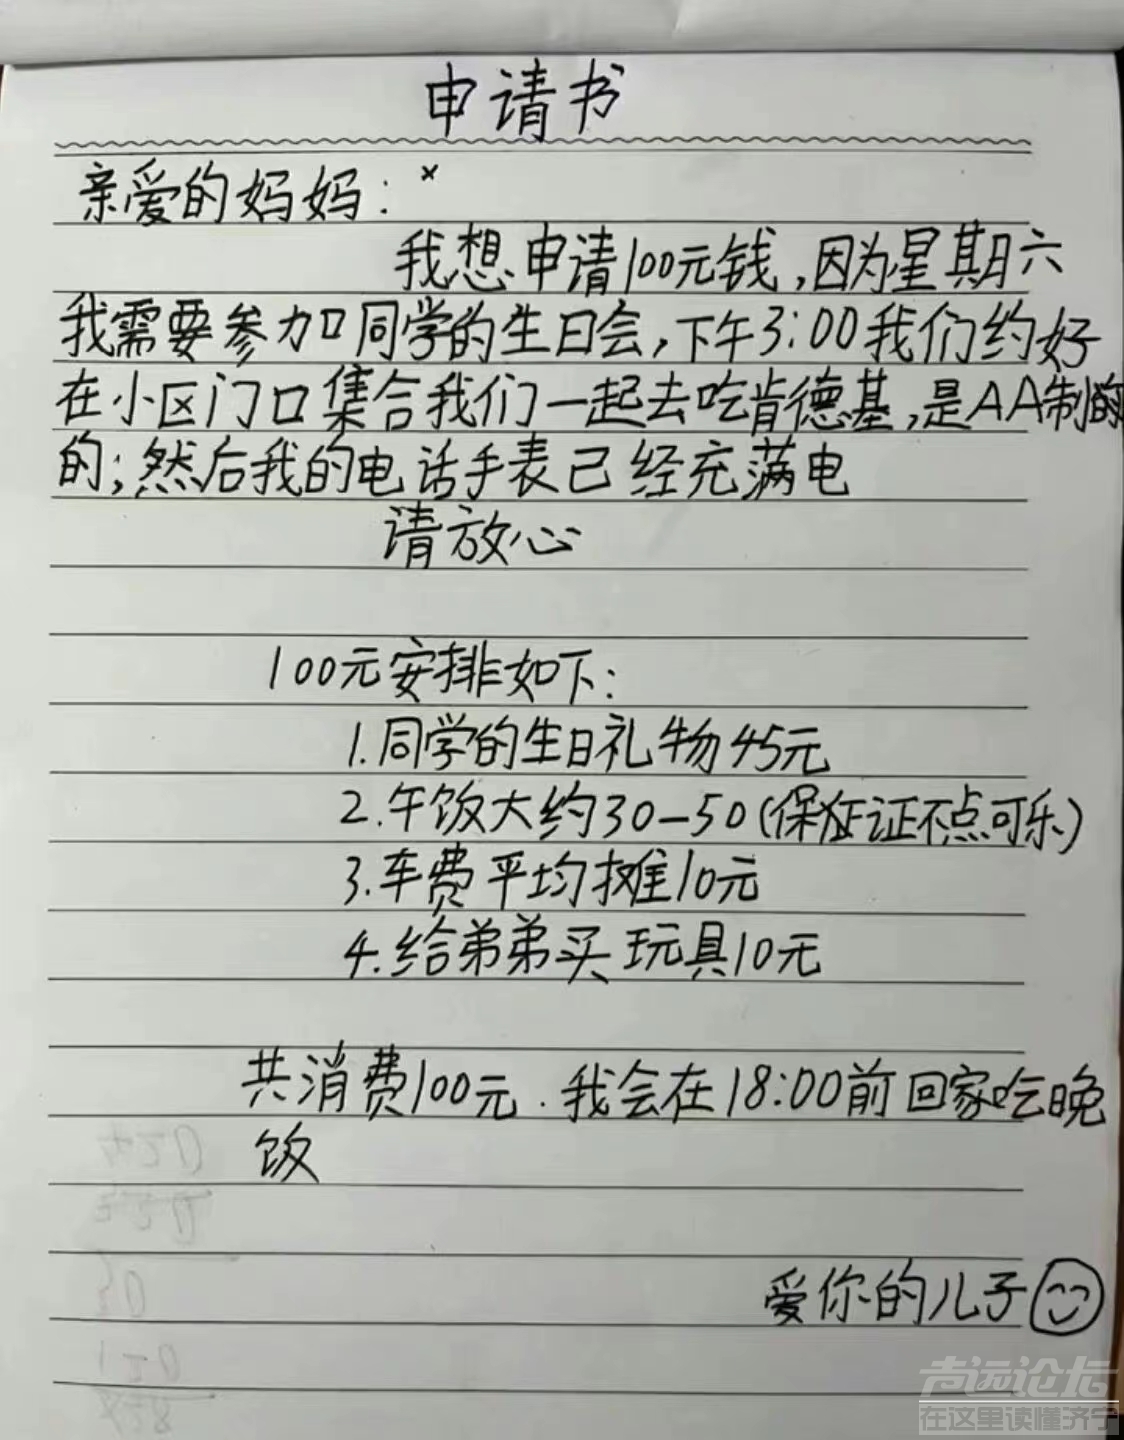 申请书
亲爱的妈妈：
我想申请100元钱,因为星期六
我需要参加同学的生日会,下午3:00我们约好
在小区门口集合我们一起去吃肯德基,是AA制的
的;然后我的电话手表已经充满电
请放心
100元安排如下:
1.同学的生日礼物45元
2.午饭大约30-50(保证证不点可乐)
3.车费平均摊10元
4.给弟弟买玩具10元
共消费100元.我会在18:00前回家吃晚
饭
爱你的儿子
志远论坛
在这里读懂济宁